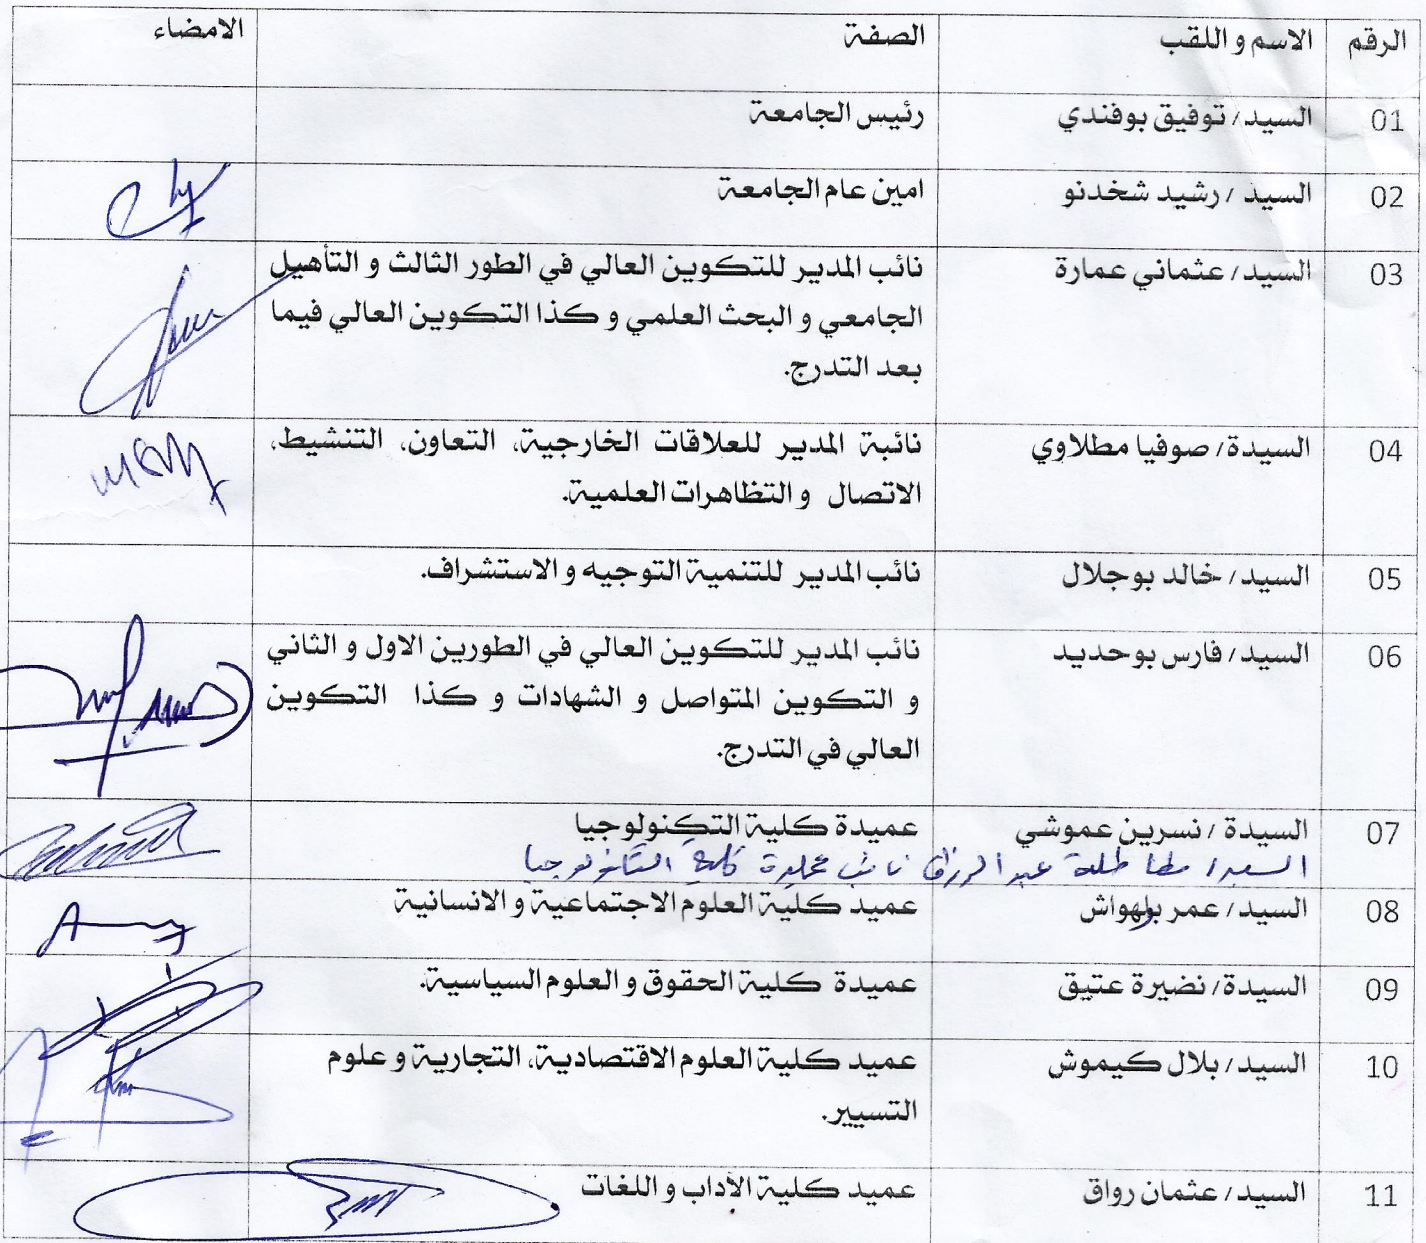 الرقم الاسم و اللقب الصفة الامضاء
01 السيد / توفيق بوفندي رئيس الجامعة
02 السيد / رشيد شخدنو امين عام الجامعة
03 السيد / عثماني عمارة نائب المدير للتكوين العالي في الطور الثالث و التأهيل
الجامعي و البحث العلمي و كذا التكوين العالي فيما
بعد التدرج.
04 السيدة / صوفيا مطلاوي نائبة المدير للعلاقات الخارجية، التعاون، التنشيط،
الاتصال و التظاهرات العلمية.
05 السيد / خالد بوجلال نائب المدير للتنمية التوجيه و الاستشراف.
06 السيد / فارس بوحديد نائب المدير للتكوين العالي في الطورين الاول و الثاني
و التكوين المتواصل و الشهادات و كذا التكوين
العالي في التدرج.
07 السيدة / نسرين عموشي عميدة كلية التكنولوجيا
السيد / عبد الرزاق نائب عميدة كلية التكنولوجيا
08 السيد / عمر بولهواش عميد كلية العلوم الاجتماعية و الانسانية
09 السيدة / نضيرة عتيق عميدة كلية الحقوق و العلوم السياسية.
10 السيد / بلال كيموش عميد كلية العلوم الاقتصادية، التجارية و علوم
التسيير.
11 السيد / عثمان رواق عميد كلية الأداب و اللغات